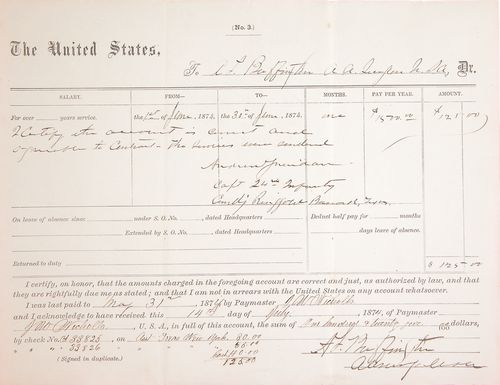 (No. 3.)
The United States,
To A. F. Buffington A. A. Surgeon U.S.A., Dr.
SALARY. FROM— TO— MONTHS. PAY PER YEAR. AMOUNT.
For over years service. the 1st of June, 1874, the 31st of June, 1874. one $1500.00 $125 00
I certify the account is correct and
opposite to Contract - The services were rendered
Capt 24th Infantry
Comd'g Ringgold Barracks, Texas
On leave of absence since under S. O. No. , dated Headquarters Deduct half pay for months
Extended by S. O. No. , dated Headquarters days leave of absence.
Returned to duty $ 125.00
I certify, on honor, that the amounts charged in the foregoing account are correct and just, as authorized by law, and that
they are rightfully due me as stated; and that I am not in arrears with the United States on any account whatsoever.
I was last paid to May 31st, 1874 by Paymaster Nicholls
and I acknowledge to have received this 14th day of July, 1874, of Paymaster
Nicholls, U. S. A., in full of this account, the sum of One hundred & twenty five 00/100 dollars,
by check No. 33825, on Asst Treas New York 80.00
" " " 33826 " " 45.00
(Signed in duplicate.) 125.00
A. F. Buffington